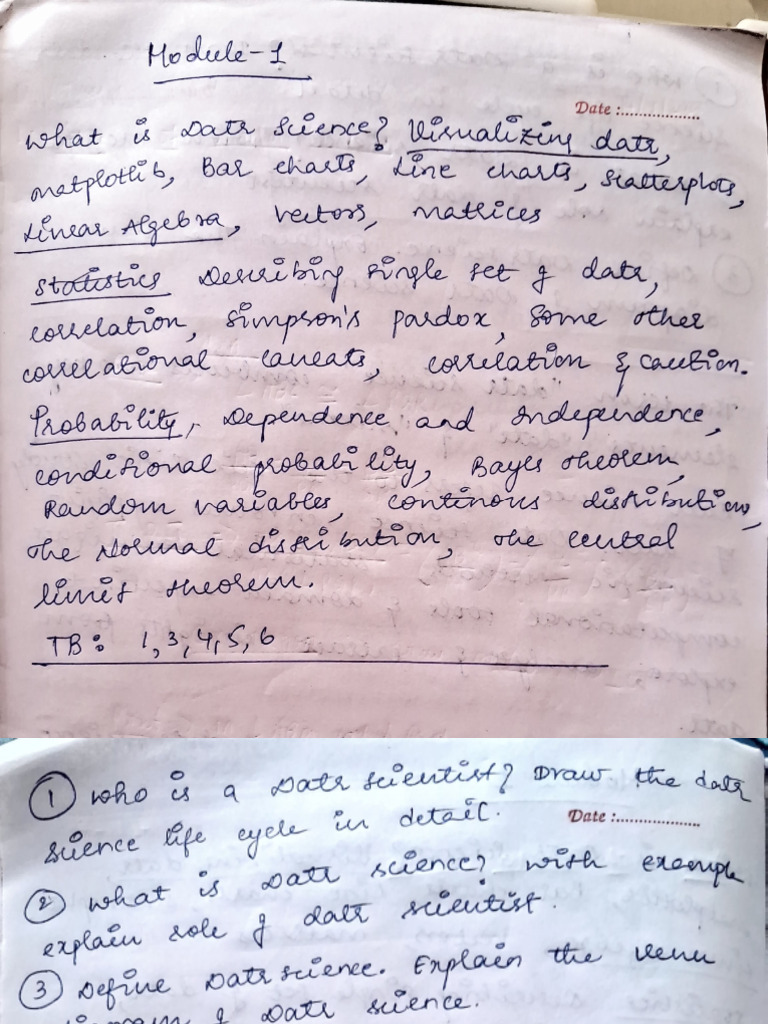 Module-1
Date :..................
What is Data Science? Visualizing data,
matplotlib, Bar charts, Line charts, scatterplots,
Linear Algebra, Vectors, Matrices
Statistics Describing single set of data,
correlation, Simpson's pardox, Some other
correlational caveats, correlation & caution.
Probability, Dependence and Independence,
conditional probability, Bayes theorem,
Random variables, continous distribution,
The Normal distribution, The central
limit theorem.
TB: 1, 3, 4, 5, 6
① Who is a Data scientist? Draw the data
science life cycle in detail.
Date :..................
② What is Data science? with example
explain role of data scientist.
③ Define Data science. Explain the Venu
diagram of Data science.